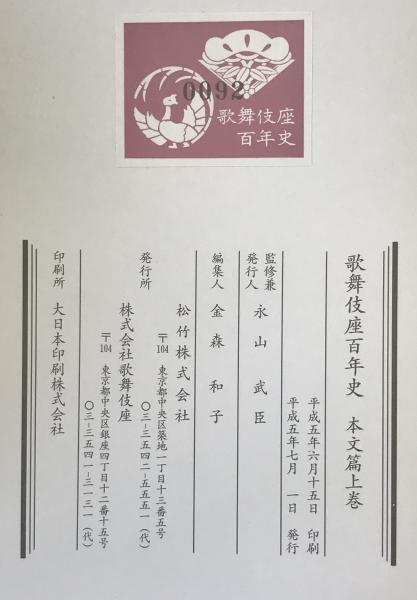 0092
歌舞伎座
百年史
歌舞伎座百年史 本文篇上巻
平成五年六月十五日 印刷
平成五年七月 一日 発行
監修兼
発行人 永山武臣
編集人 金森和子
発行所 松竹株式会社
〒104 東京都中央区築地一丁目十三番五号
〇三-三五四二-五五五一(代)
株式会社歌舞伎座
〒104 東京都中央区銀座四丁目十二番十五号
〇三-三五四一-三一三一(代)
印刷所 大日本印刷株式会社